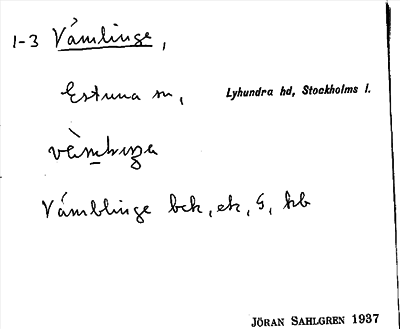 1-3 Vámlinge,
Estuna sn, Lyhundra hd, Stockholms l.
Vámblinge bck, ek, G, kb
JÖRAN SAHLGREN 1937